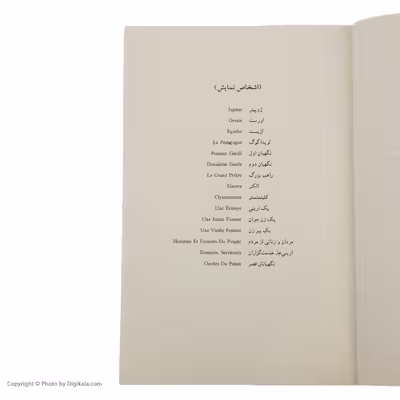 (اشخاص نمایش)
ژوپیتر Jupiter
اورست Oreste
اژیست Egisthe
لوپداگوگ Le Pédagogue
نگهبان اول Premier Garde
نگهبان دوم Deuxième Garde
راهب بزرگ Le Grand Prêtre
الکتر Electre
کلیتمنستر Clytemnestre
یک ارینی Une Érinnye
یک زن جوان Une Jeune Femme
یک پیر زن Une Vieille Femme
مردان و زنانی از مردم Hommes Et Femmes Du Peuple
ارینی‌ها، خدمت‌گزاران Erinnyes, Serviteurs
نگهبانان قصر Gardes Du Palais
Copyright © Photo by Digikala.com